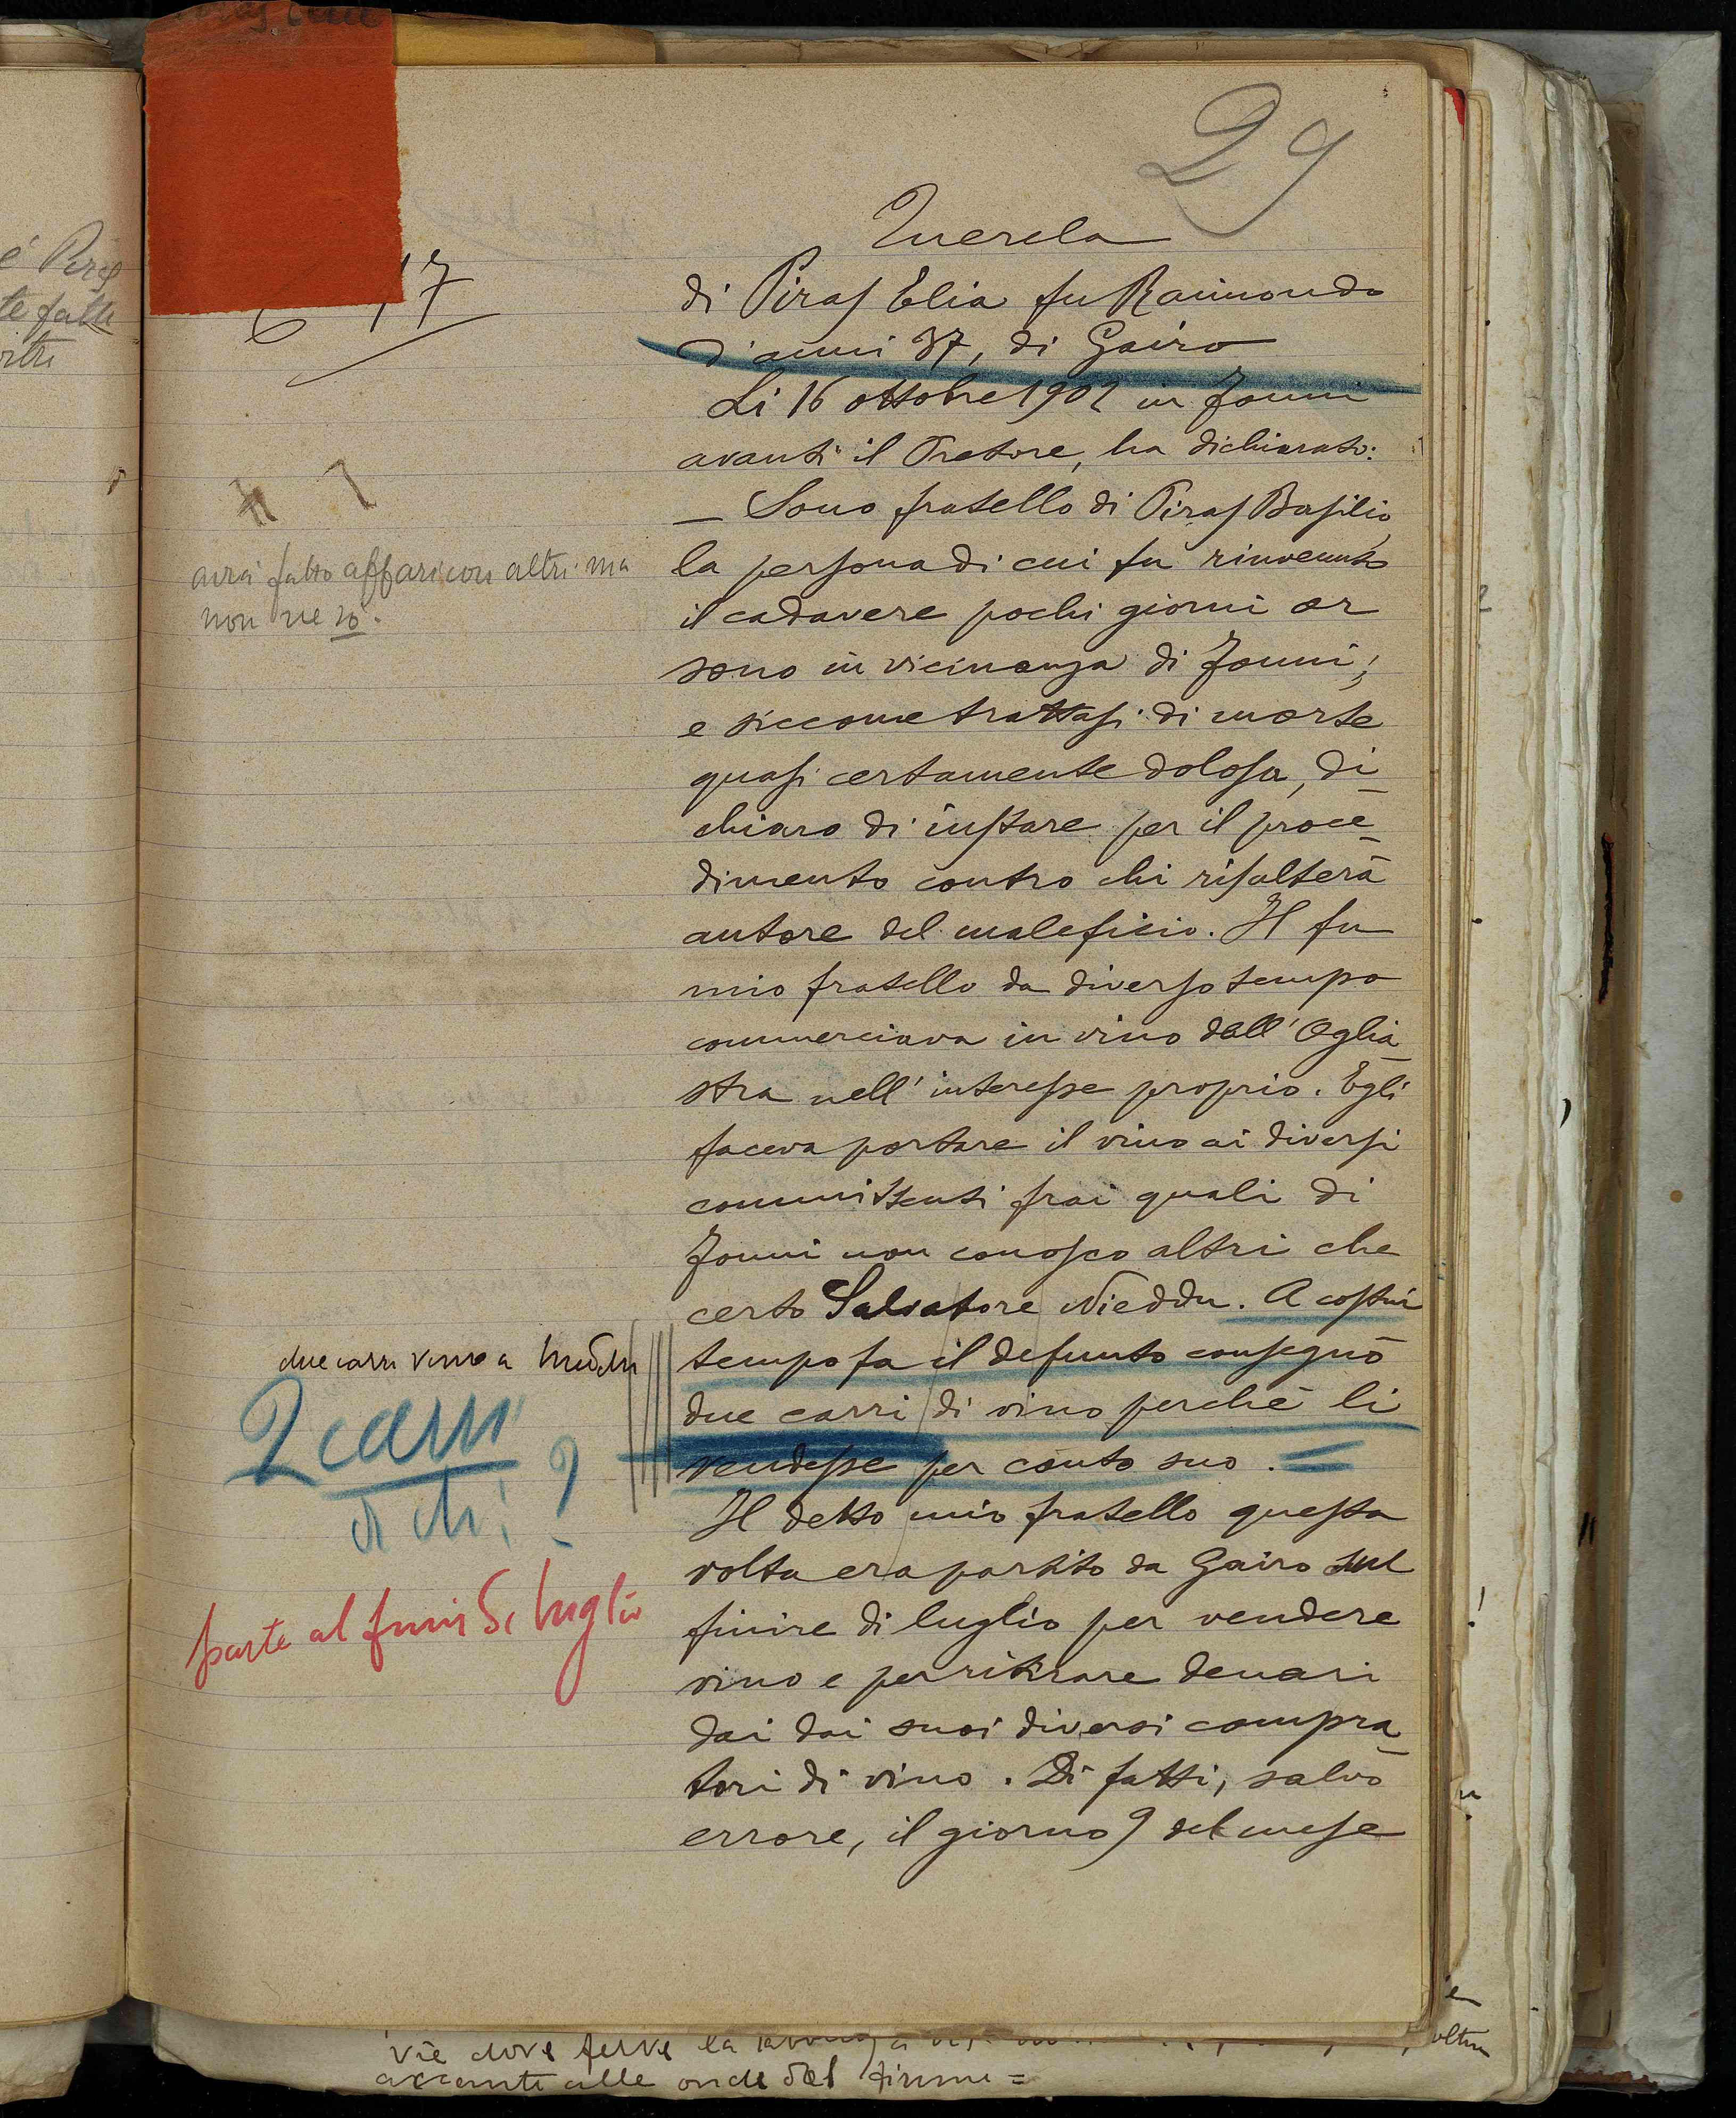 29
Querela
17
di Piras Elia fu Raimondo
d'anni 37, di Gairo
Li 16 ottobre 1902 in Jonni
avanti il Pretore, ha dichiarato:
— Sono fratello di Piras Basilio
la persona di cui fu rinvenuto
il cadavere pochi giorni or
sono in vicinanza di Jonni;
e siccome trattasi di morte
quasi certamente dolosa, di-
chiaro di instare per il proce-
dimento contro chi risulterà
autore del maleficio. Il fu
mio fratello da diverso tempo
commerciava in vino dell'Oglia-
stra nell'interesse proprio. Egli
faceva portare il vino ai diversi
committenti frai quali di
Jonni non conosco altri che
certo Salvatore Nieddu. A costui
tempo fa il defunto consegnò
due carri di vino perché li
vendesse per conto suo. =
Il detto mio fratello questa
volta era partito da Gairo sul
finire di luglio per vendere
vino e per ritirare denari
dai dai suoi diversi compra-
tori di vino. Di fatti, salvo
errore, il giorno 9 del mese
avrà fatto affari con altri ma
non ne so.
due carri vino a
2 carri
di chi?
parte al finir di luglio
vie dove ferve la
accanto alle onde del fiume =